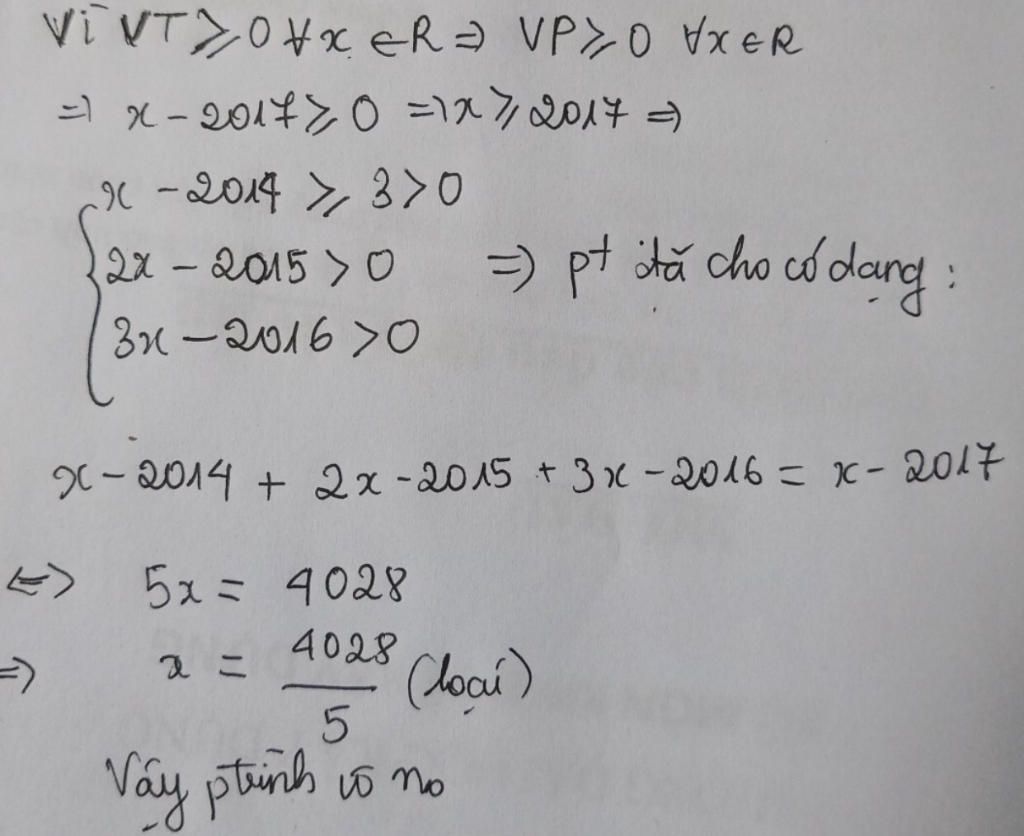 Vì VT ≥ 0 ∀x ∈ R ⇒ VP ≥ 0 ∀x ∈ R
⇒ x - 2017 ≥ 0 ⇒ x ≥ 2017 ⇒
x - 2014 ≥ 3 > 0
2x - 2015 > 0 ⇒ pt đã cho có dạng :
3x - 2016 > 0
x - 2014 + 2x - 2015 + 3x - 2016 = x - 2017
⇔ 5x = 4028
⇒ x = 4028/5 (loại)
Vậy ptrình vô no